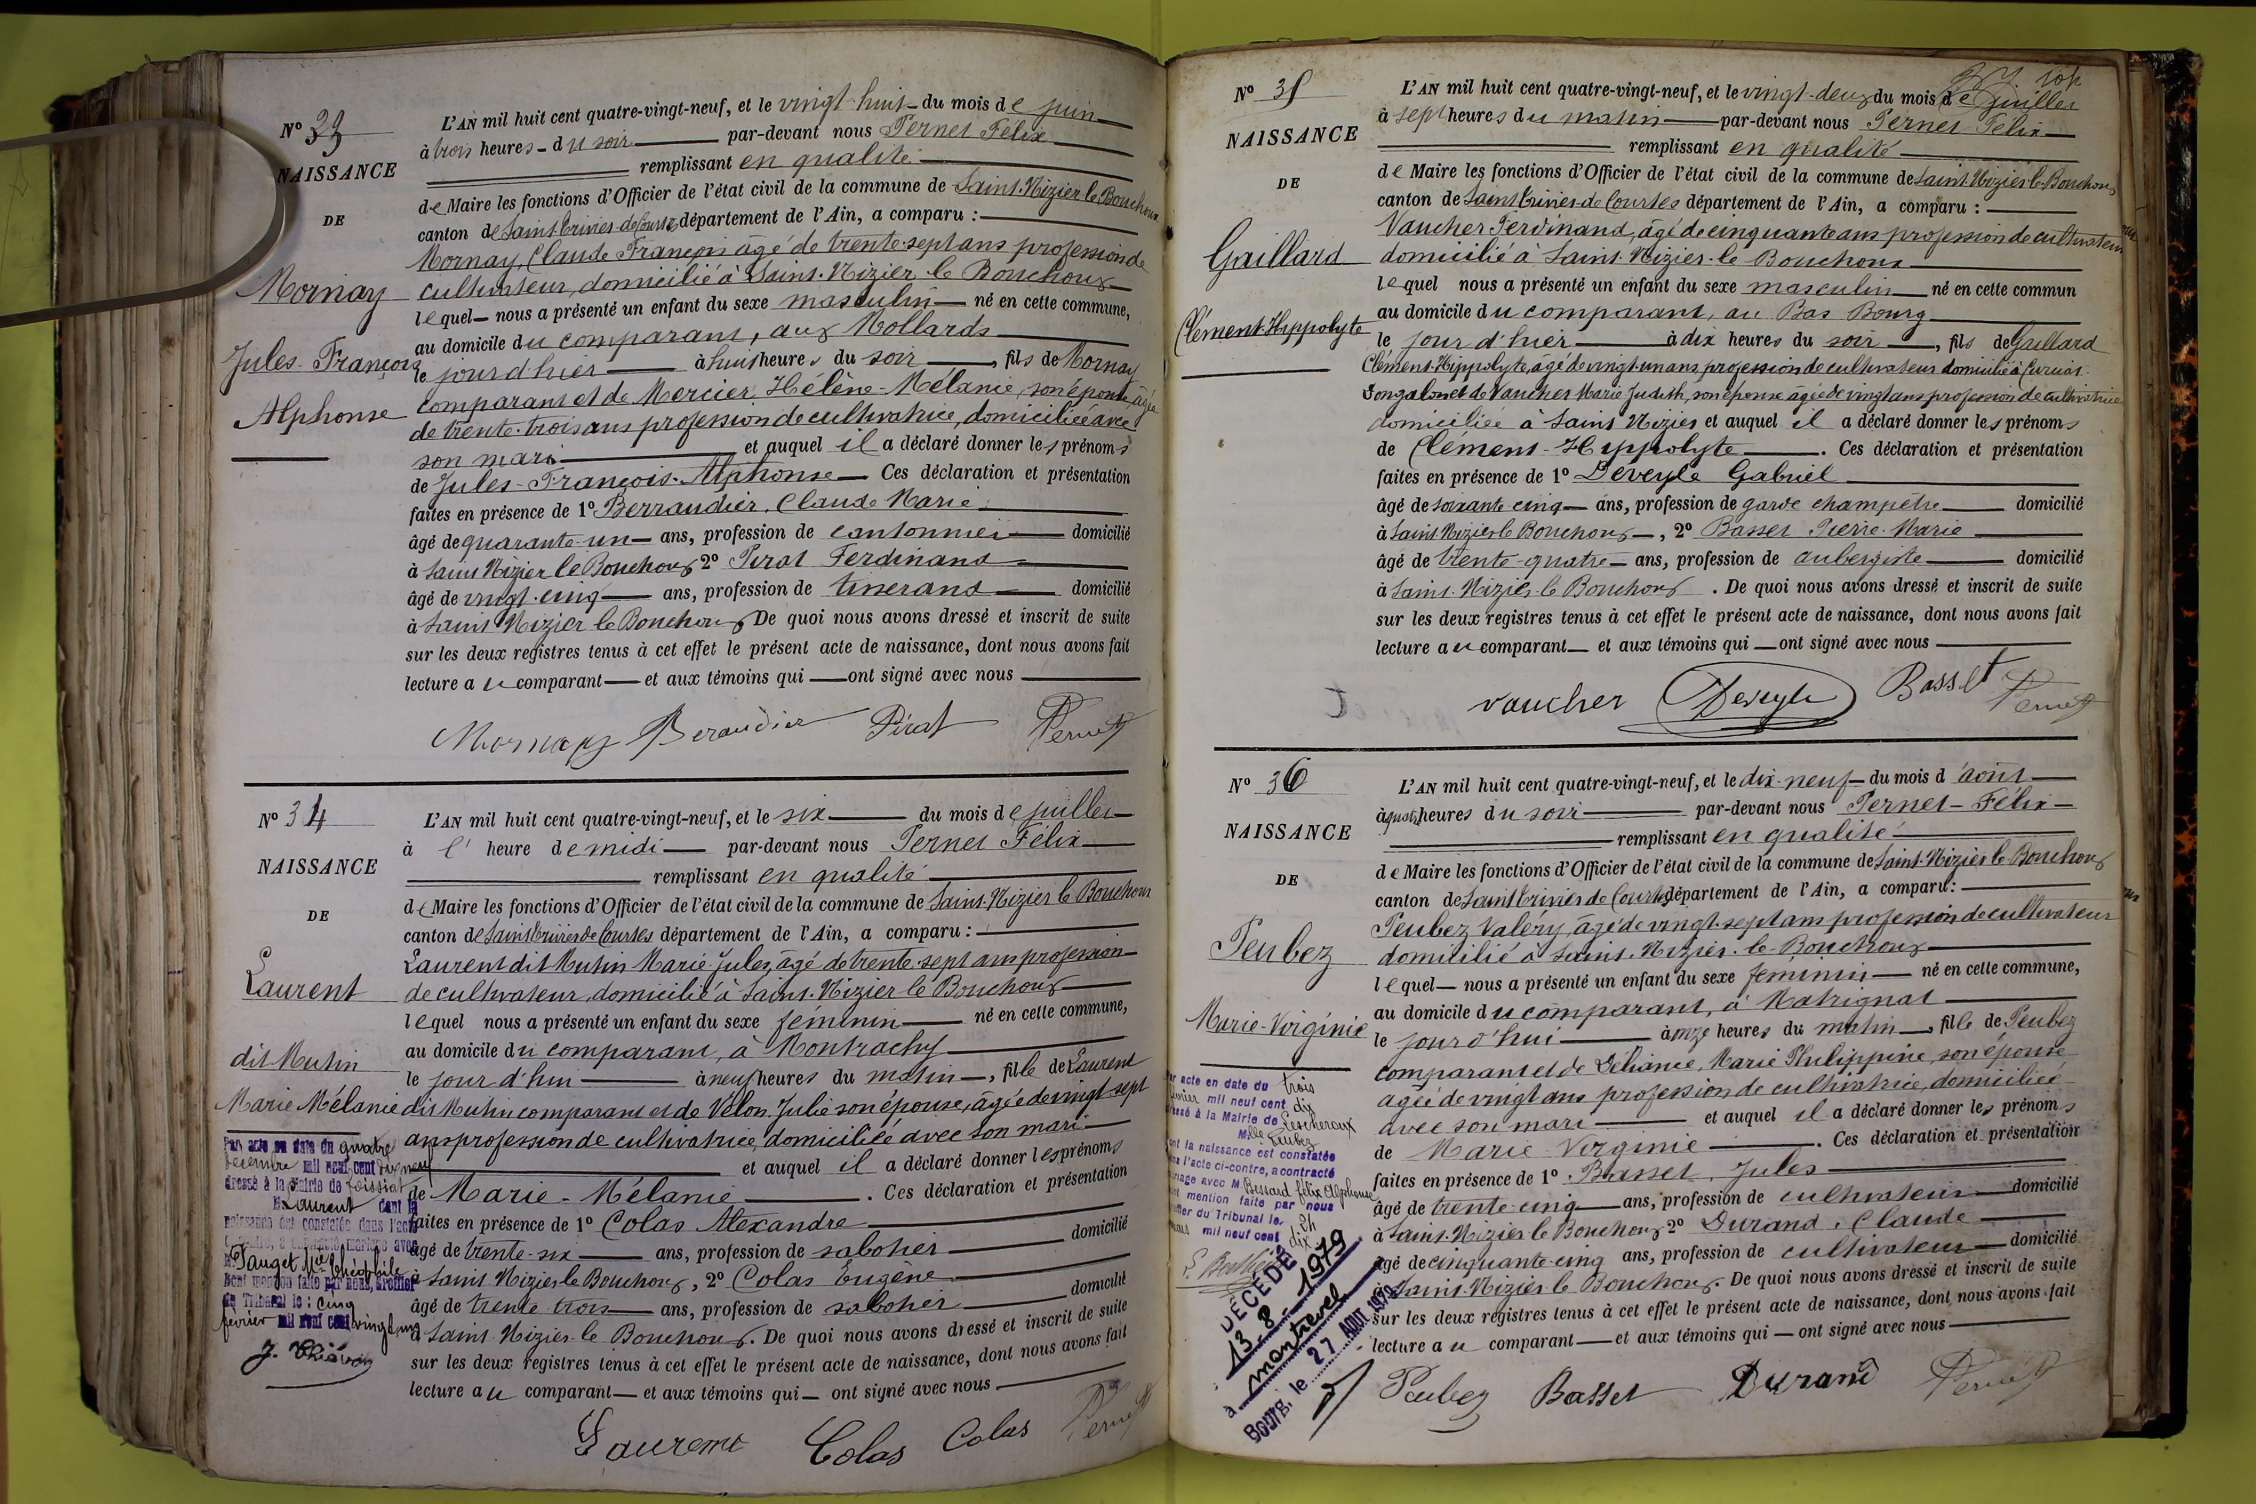 N° 33
NAISSANCE
DE
Mornay
Jules-François
Alphonse
L'AN mil huit cent quatre-vingt-neuf, et le vingt-huit du mois de juin
à trois heures du soir par-devant nous Pernet Félix
remplissant en qualité
de Maire les fonctions d'Officier de l'état civil de la commune de Saint-Nizier le Bouchoux
canton de Saint Trivier de Courtes département de l'Ain, a comparu :
Mornay, Claude François âgé de trente-sept ans profession de
cultivateur, domicilié à Saint-Nizier le Bouchoux
lequel nous a présenté un enfant du sexe masculin né en cette commune,
au domicile du comparant, aux Mollards
le jour d'hier à huit heures du soir, fils de Mornay
comparant et de Mercier, Hélène-Mélanie, son épouse, âgée
de trente-trois ans profession de cultivatrice, domiciliée avec
son mari et auquel il a déclaré donner les prénoms
de Jules-François-Alphonse Ces déclaration et présentation
faites en présence de 1° Berraudier, Claude Marie
âgé de quarante-un ans, profession de cantonnier domicilié
à Saint Nizier le Bouchoux 2° Pirat Ferdinand
âgé de vingt-cinq ans, profession de tisserand domicilié
à Saint Nizier le Bouchoux De quoi nous avons dressé et inscrit de suite
sur les deux registres tenus à cet effet le présent acte de naissance, dont nous avons fait
lecture au comparant et aux témoins qui ont signé avec nous
Mornay Beraudier Pirat Pernet
N° 34
NAISSANCE
DE
Laurent
dit Mutin
Marie Mélanie
Par acte en date du quatre
décembre mil neuf cent dix neuf
dressé à la Mairie de Foissiat
M Laurent dont la
naissance est constatée dans l'acte
ci-contre, a contracté mariage avec
M. Pauget Mie Théophile
Dont mention faite par nous, greffier
du Tribunal le : cinq
février mil neuf cent vingt
L'AN mil huit cent quatre-vingt-neuf, et le six du mois de juillet
à l' heure de midi par-devant nous Pernet Félix
remplissant en qualité
de Maire les fonctions d'Officier de l'état civil de la commune de Saint-Nizier le Bouchoux
canton de Saint Trivier de Courtes département de l'Ain, a comparu :
Laurent dit Mutin Marie Jules, âgé de trente-sept ans profession
de cultivateur, domicilié à Saint-Nizier le Bouchoux
lequel nous a présenté un enfant du sexe féminin né en cette commune,
au domicile du comparant, à Montrachy
le jour d'hui à neuf heures du matin, fille de Laurent
dit Mutin comparant et de Velon, Julie son épouse, âgée de vingt-sept
ans profession de cultivatrice, domiciliée avec son mari
et auquel il a déclaré donner les prénoms
de Marie-Mélanie. Ces déclaration et présentation
faites en présence de 1° Colas Alexandre
âgé de trente-six ans, profession de sabotier domicilié
à Saint Nizier le Bouchoux, 2° Colas Eugène
âgé de trente-trois ans, profession de sabotier domicilié
à Saint-Nizier le Bouchoux. De quoi nous avons dressé et inscrit de suite
sur les deux registres tenus à cet effet le présent acte de naissance, dont nous avons fait
lecture au comparant et aux témoins qui ont signé avec nous
Laurent Colas Colas Pernet
N° 35
NAISSANCE
DE
Gaillard
Clément-Hippolyte
L'AN mil huit cent quatre-vingt-neuf, et le vingt-deux du mois de juillet
à sept heures du matin par-devant nous Pernet Félix
remplissant en qualité
de Maire les fonctions d'Officier de l'état civil de la commune de Saint Nizier le Bouchoux
canton de Saint Trivier de Courtes département de l'Ain, a comparu :
Vaucher Ferdinand, âgé de cinquante ans profession de cultivateur
domicilié à Saint-Nizier-le Bouchoux
lequel nous a présenté un enfant du sexe masculin né en cette commun
au domicile du comparant, au Bas Bourg
le jour d'hier à dix heures du soir, fils de Gaillard
Clément-Hippolyte, âgé de vingt-un ans profession de cultivateur domicilié à Curciat-
Dongalon et de Vaucher Marie Judith, son épouse âgée de vingt ans profession de cultivatrice
domiciliée à Saint Nizier et auquel il a déclaré donner les prénoms
de Clément-Hippolyte. Ces déclaration et présentation
faites en présence de 1° Deveyle Gabriel
âgé de soixante cinq ans, profession de garde champêtre domicilié
à Saint Nizier le Bouchoux, 2° Basset Pierre-Marie
âgé de trente-quatre ans, profession de aubergiste domicilié
à Saint-Nizier le Bouchoux. De quoi nous avons dressé et inscrit de suite
sur les deux registres tenus à cet effet le présent acte de naissance, dont nous avons fait
lecture au comparant et aux témoins qui ont signé avec nous
vaucher Deveyle Basset Pernet
N° 36
NAISSANCE
DE
Peubez
Marie-Virginie
acte en date du trois
février mil neuf cent dix
dressé à la Mairie de Lescheroux
Mlle Peubez
dont la naissance est constatée
dans l'acte ci-contre, a contracté
mariage avec M. Bessard félix Alphonse
mention faite par nous
greffier du Tribunal le
mil neuf cent dix
DÉCÉDÉE
13 8 1979
à montrevel
Bourg, le 27 AOUT 1979
L'AN mil huit cent quatre-vingt-neuf, et le dix-neuf du mois d'août
à quatre heures du soir par-devant nous Pernet-Félix
remplissant en qualité
de Maire les fonctions d'Officier de l'état civil de la commune de Saint-Nizier le Bouchoux
canton de Saint Trivier de Courtes département de l'Ain, a comparu :
Peubez Valéry, âgé de vingt-sept ans profession de cultivateur
domicilié à Saint-Nizier-le-Bouchoux
lequel nous a présenté un enfant du sexe féminin né en cette commune,
au domicile du comparant, à Matrignat
le jour d'hui à onze heures du matin, fille de Peubez
comparant et de Deliance, Marie Philippine, son épouse
âgée de vingt ans profession de cultivatrice, domiciliée
avec son mari et auquel il a déclaré donner les prénoms
de Marie Virginie. Ces déclaration et présentation
faites en présence de 1° Basset, Jules
âgé de trente-cinq ans, profession de cultivateur domicilié
à Saint-Nizier le Bouchoux 2° Durand, Claude
âgé de cinquante-cinq ans, profession de cultivateur domicilié
à Saint-Nizier le Bouchoux. De quoi nous avons dressé et inscrit de suite
sur les deux registres tenus à cet effet le présent acte de naissance, dont nous avons fait
lecture au comparant et aux témoins qui ont signé avec nous
Peubez Basset Durand Pernet